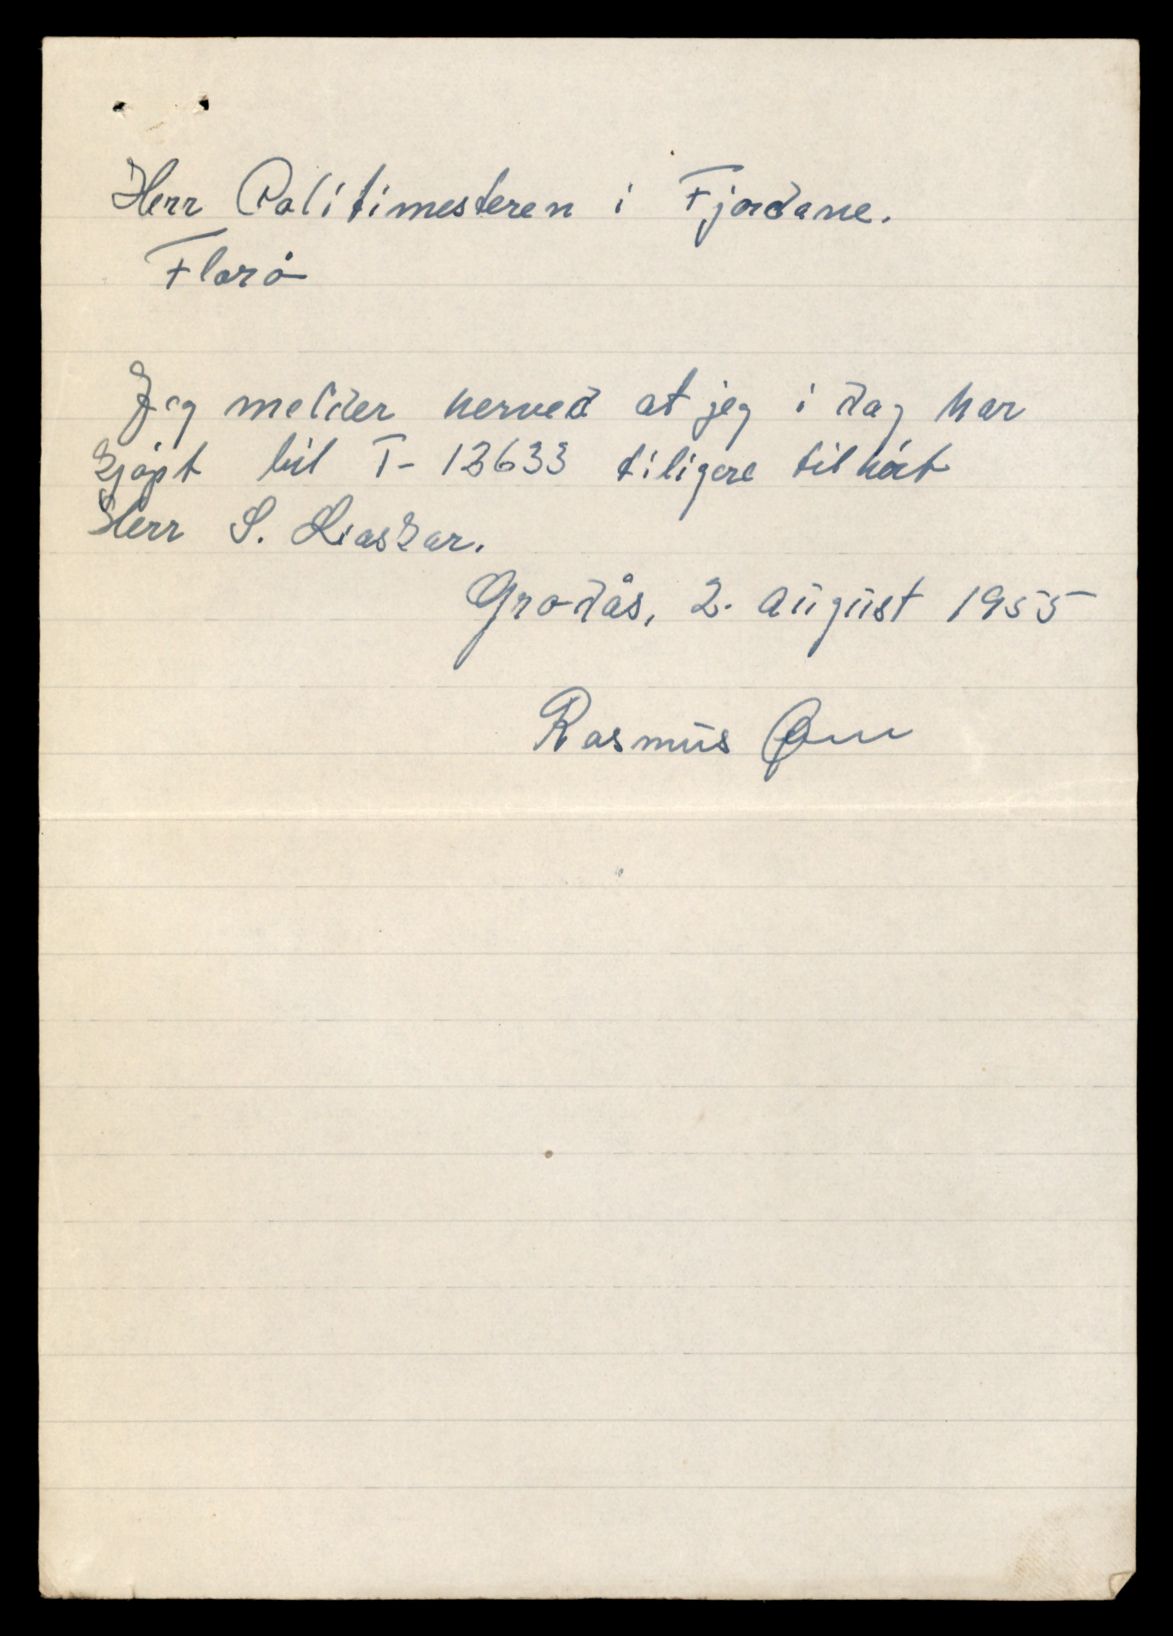 Herr Politimesteren i Fjordane.
Florö
Jeg melder herved at jeg i dag har
kjöpt bil T- 13633 tiligere tilhört
Herr S. Liaskar.
Grodås, 2. august 1955
Rasmus